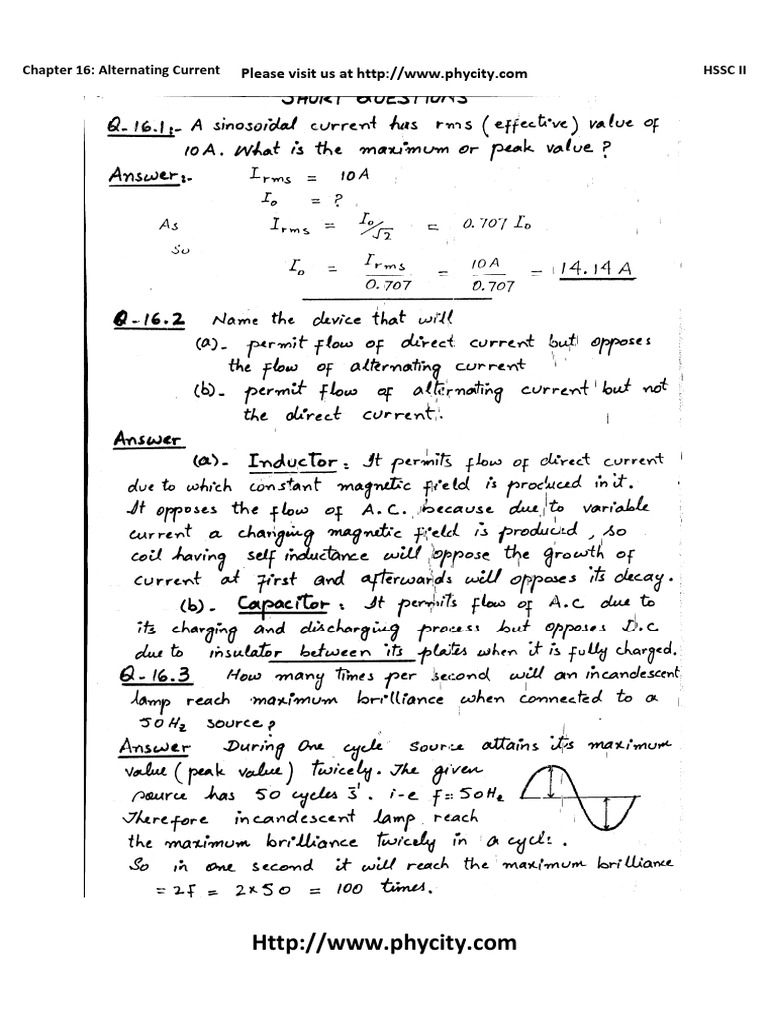 Chapter 16: Alternating Current Please visit us at http://www.phycity.com HSSC II
SHORT QUESTIONS
Q-16.1:- A sinosoidal current has rms (effective) value of
10A. What is the maximum or peak value?
Answer:- Irms = 10A
Io = ?
As Irms = Io/√2 = 0.707 Io
So
Io = Irms/0.707 = 10A/0.707 = 14.14 A
Q-16.2 Name the device that will
(a)- permit flow of direct current but opposes
the flow of alternating current
(b)- permit flow of alternating current but not
the direct current.
Answer
(a)- Inductor: It permits flow of direct current
due to which constant magnetic field is produced in it.
It opposes the flow of A.C. because due to variable
current a changing magnetic field is produced, so
coil having self inductance will oppose the growth of
current at first and afterwards will opposes its decay.
(b)- Capacitor: It permits flow of A.C due to
its charging and discharging process but opposes D.C
due to insulator between its plates when it is fully charged.
Q-16.3 How many times per second will an incandescent
lamp reach maximum brilliance when connected to a
50Hz source?
Answer During One cycle source attains its maximum
value (peak value) twicely. The given
source has 50 cycles s̄'. i-e f= 50Hz
Therefore incandescent lamp reach
the maximum brilliance twicely in a cycle.
So in one second it will reach the maximum brilliance
= 2f = 2×50 = 100 times.
Http://www.phycity.com